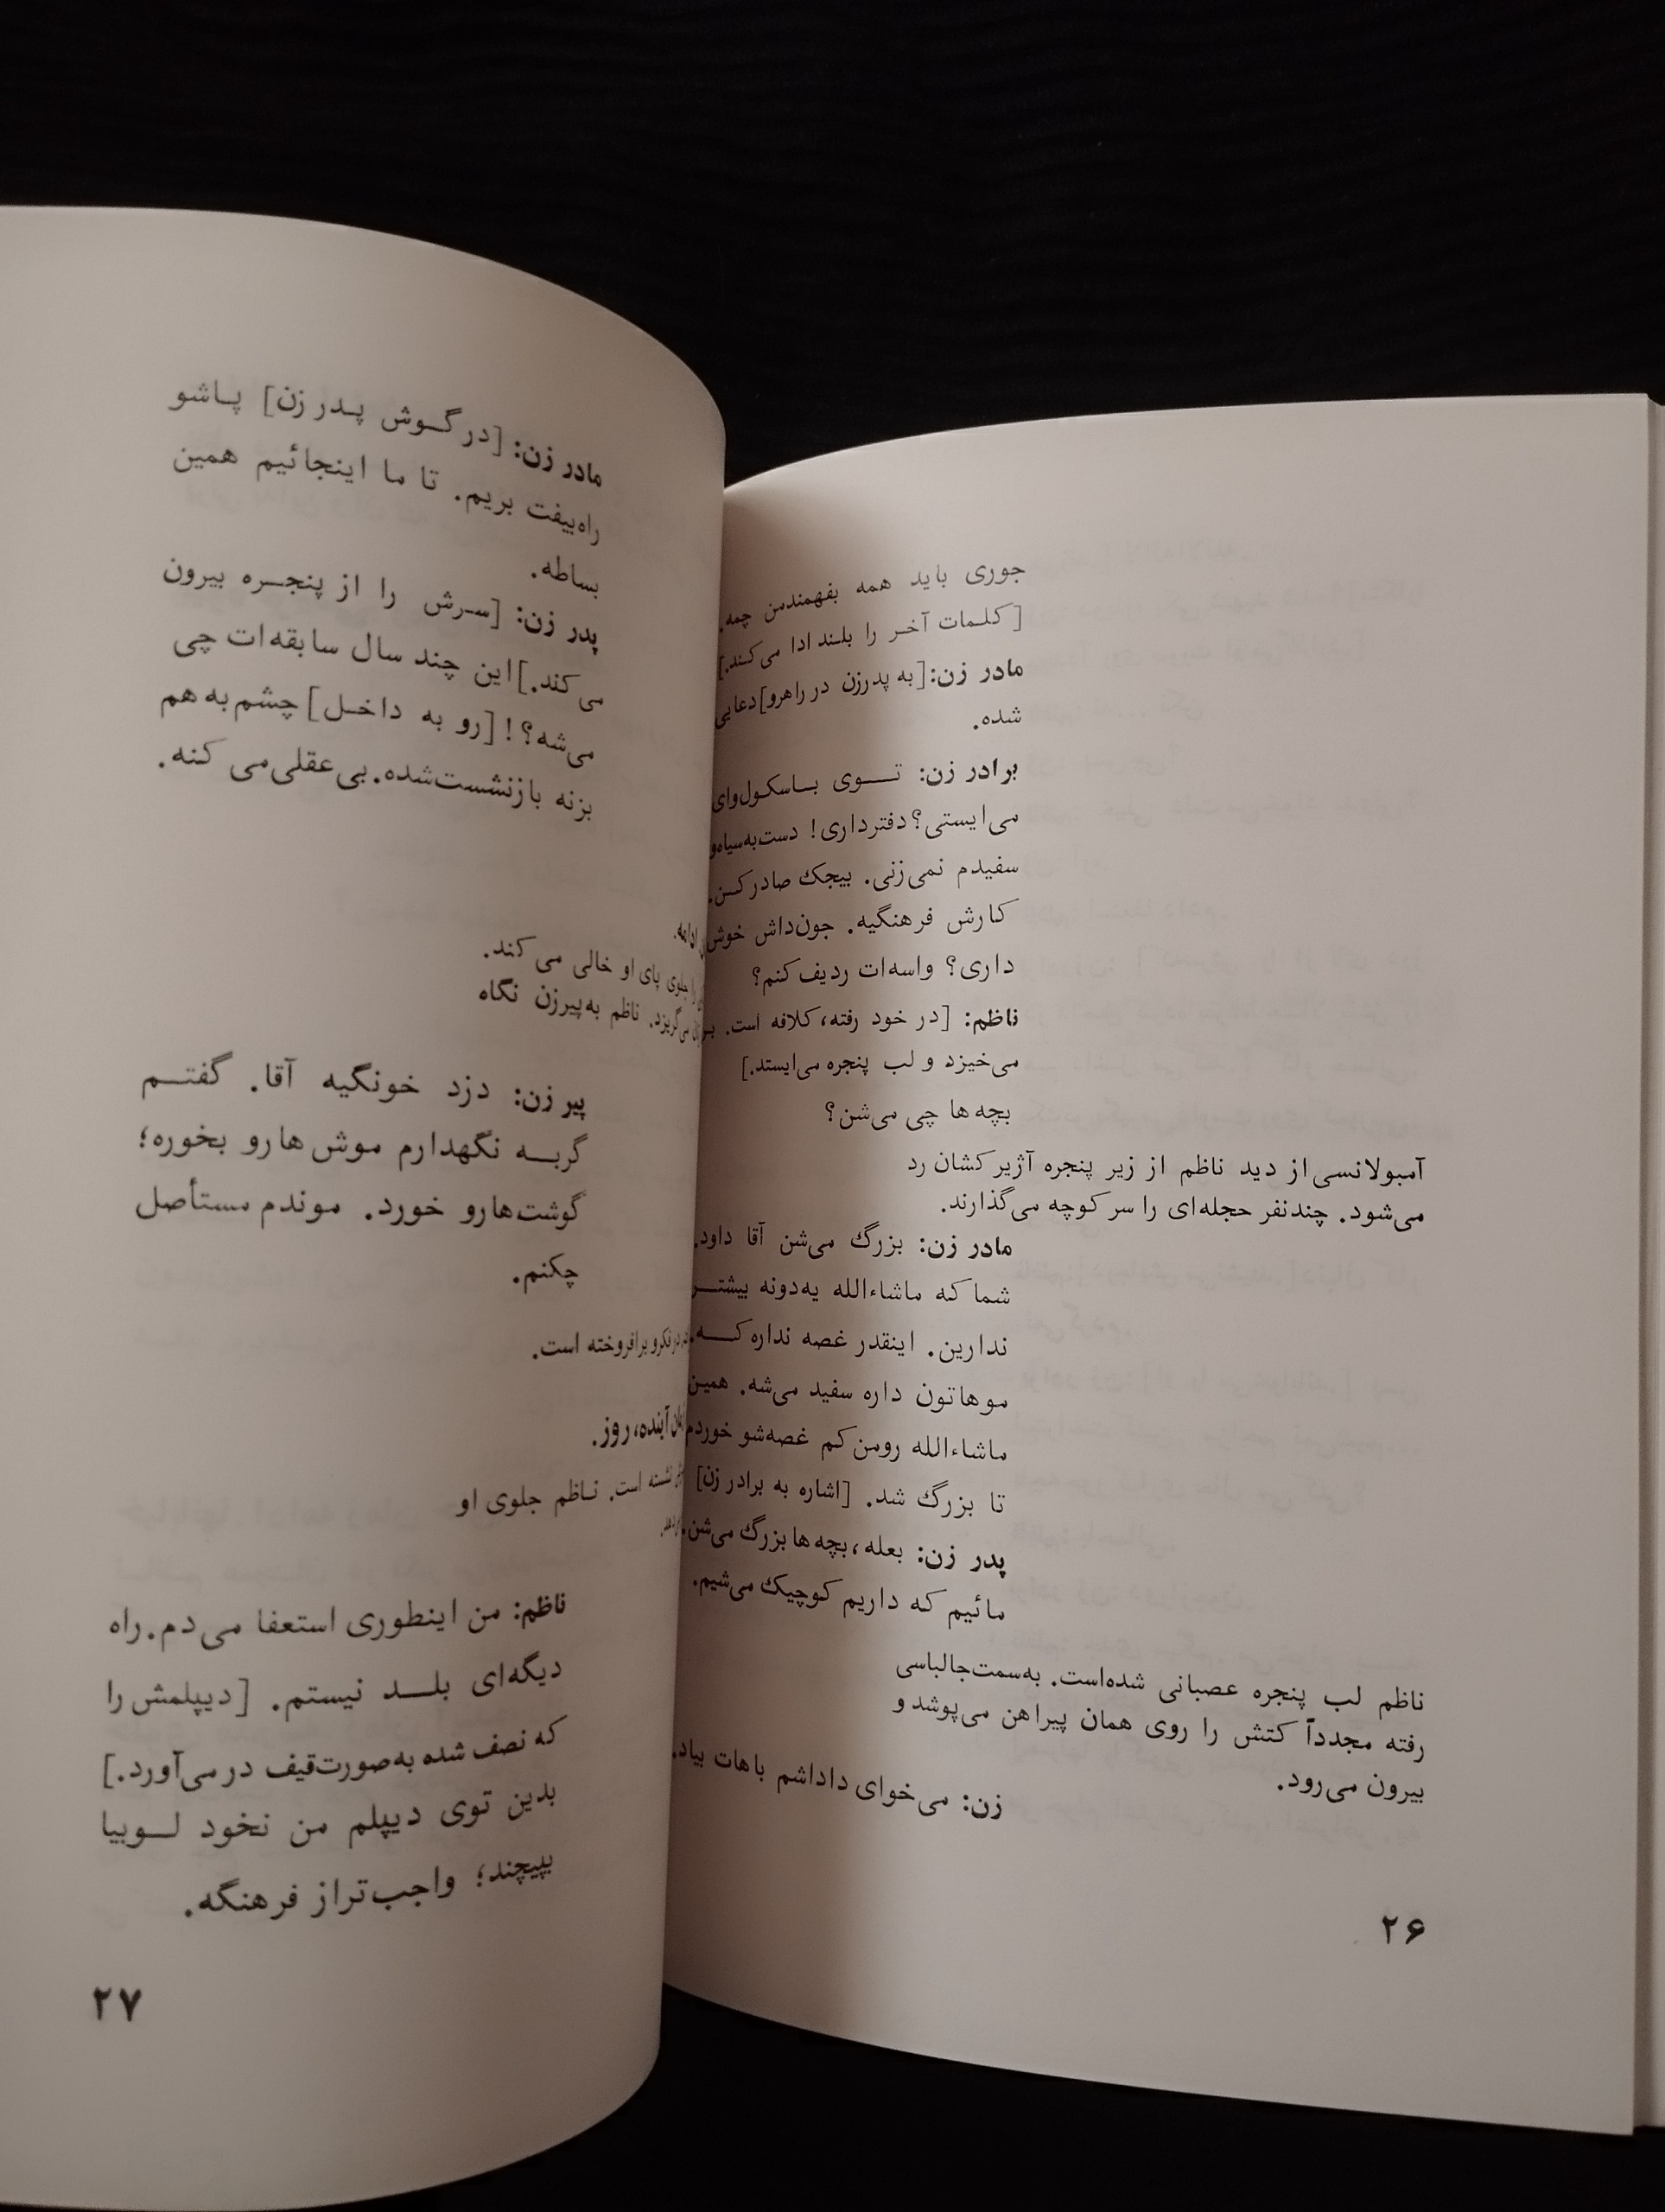 جوری باید همه بفهمند من چمه.
[کلمات آخر را بلند ادا می‌کند.]
مادر زن: [به پدرزن در راهرو] دعایی
شده.
برادر زن: توی باسکول‌وای
می‌ایستی؟ دفترداری! دست‌به‌سیاه‌و
سفیدم نمی‌زنی. بیجک صادرکن.
کارش فرهنگیه. جون‌داش خوش
داری؟ واسه‌ات ردیف کنم؟
ناظم: [در خود رفته، کلافه است.
می‌خیزد و لب پنجره می‌ایستد.]
بچه‌ها چی می‌شن؟
آمبولانسی از دید ناظم از زیر پنجره آژیرکشان رد
می‌شود. چندنفر حجله‌ای را سر کوچه می‌گذارند.
مادر زن: بزرگ می‌شن آقا داود.
شما که ماشاءالله یه‌دونه بیشتر
ندارین. اینقدر غصه نداره که.
موهاتون داره سفید می‌شه. همین
ماشاءالله رومن کم غصه‌شو خوردم
تا بزرگ شد. [اشاره به برادر زن]
پدر زن: بعله، بچه‌ها بزرگ می‌شن.
مائیم که داریم کوچیک می‌شیم.
ناظم لب پنجره عصبانی شده‌است. به‌سمت‌جالباسی
رفته مجدداً کتش را روی همان پیراهن می‌پوشد و
بیرون می‌رود.
زن: می‌خوای داداشم باهات بیاد.
۲۶
مادر زن: [در گوش پدر زن] پاشو
راه‌بیفت بریم. تا ما اینجائیم همین
بساطه.
پدر زن: [سرش را از پنجره بیرون
می‌کند.] این چند سال سابقه‌ات چی
می‌شه؟! [رو به داخل] چشم به هم
بزنه بازنشست‌شده. بی‌عقلی‌می کنه.
ادامه.
جلوی پای او خالی می‌کند.
می‌گریزد. ناظم به‌پیرزن نگاه
پیر زن: دزد خونگیه آقا. گفتم
گربه نگهدارم موش‌هارو بخوره؛
گوشت‌هارو خورد. موندم مستأصل
چکنم.
در فکر و برافروخته است.
آینده، روز.
نشسته است. ناظم جلوی او
ناظم: من اینطوری استعفا می‌دم. راه
دیگه‌ای بلد نیستم. [دیپلمش را
که نصف شده به‌صورت‌قیف در می‌آورد.]
بدین توی دیپلم من نخود لوبیا
بپیچند؛ واجب‌تر از فرهنگه.
۲۷